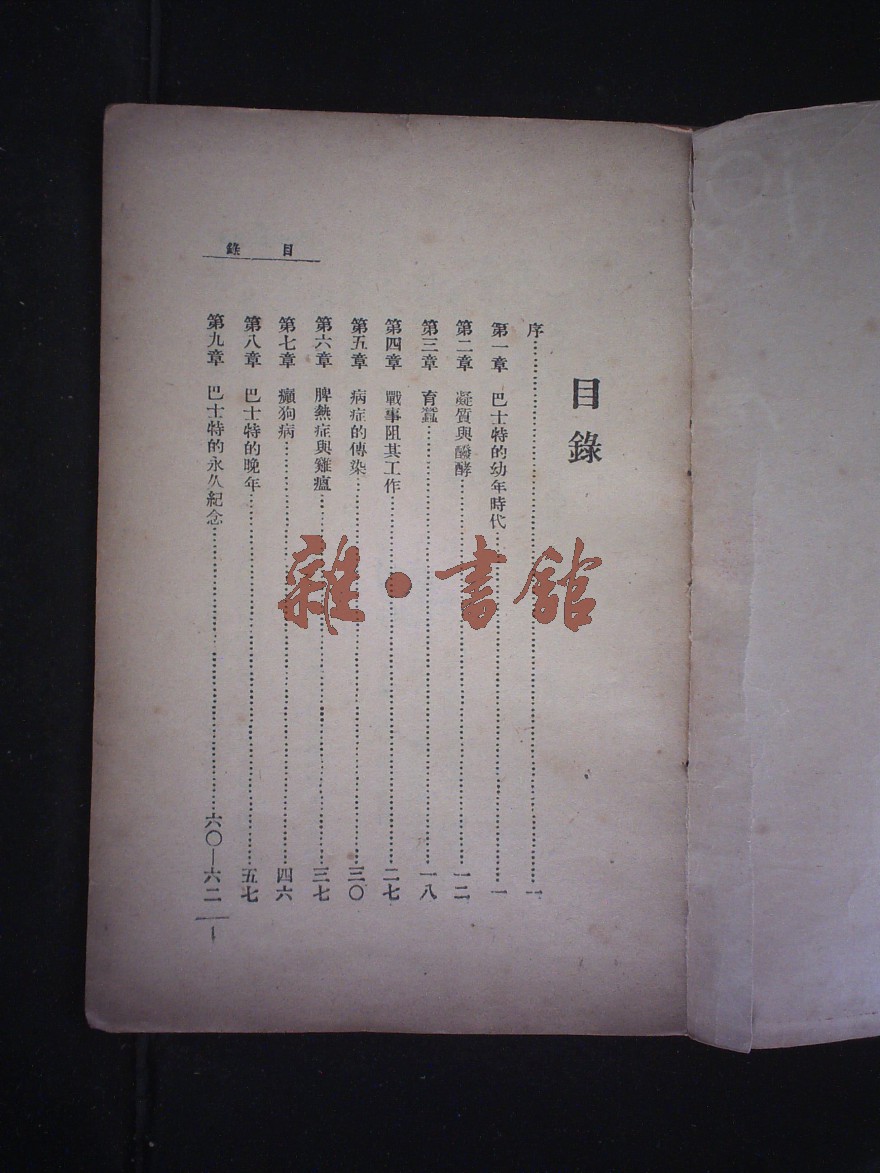 目錄
目錄
序……一
第一章 巴士特的幼年時代……一
第二章 凝質與醱酵……一二
第三章 育蠶……一八
第四章 戰事阻其工作……二七
第五章 病症的傳染……三〇
第六章 脾熱症與雞瘟……三七
第七章 癲狗病……四六
第八章 巴士特的晚年……五七
第九章 巴士特的永久紀念……六〇—六二
一
雜·書館